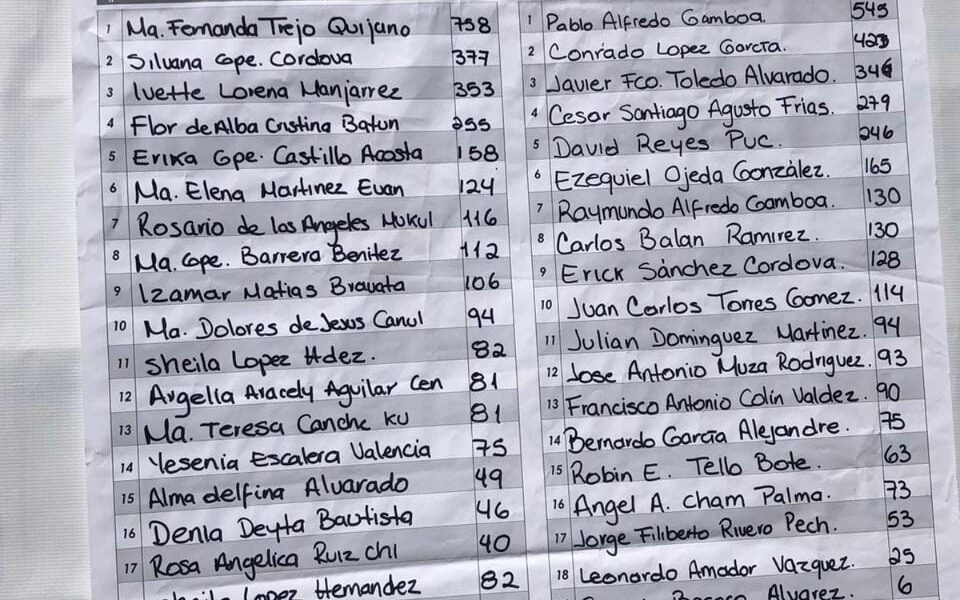 1 Ma. Fernanda Trejo Quijano 758
2 Silvana Gpe. Cordova 377
3 Ivette Lorena Manjarrez 353
4 Flor de Alba Cristina Batun 255
5 Erika Gpe. Castillo Acosta 158
6 Ma. Elena Martinez Euan 124
7 Rosario de las Angeles Mukul 116
8 Ma. Gpe. Barrera Benitez 112
9 Izamar Matias Bravata 106
10 Ma. Dolores de Jesus Canul 94
11 Sheila Lopez Hdez. 82
12 Argelia Aracely Aguilar Cen 81
13 Ma. Teresa Canche Ku 81
14 Yesenia Escalera Valencia 75
15 Alma delfina Alvarado 49
16 Denia Deyta Bautista 46
17 Rosa Angelica Ruiz Chi 40
Lopez Hernandez 82
1 Pablo Alfredo Gamboa. 545
2 Conrado Lopez García. 423
3 Javier Fco. Toledo Alvarado. 346
4 Cesar Santiago Agusto Frias. 279
5 David Reyes Puc. 246
6 Ezequiel Ojeda González. 165
7 Raymundo Alfredo Gamboa. 130
8 Carlos Balan Ramirez. 130
9 Erick Sánchez Cordova. 128
10 Juan Carlos Torres Gomez. 114
11 Julian Dominguez Martinez. 94
12 Jose Antonio Muza Rodriguez. 93
13 Francisco Antonio Colín Valdez. 90
14 Bernardo García Alejandre. 75
15 Robin E. Tello Bote. 63
16 Angel A. Cham Palma. 73
17 Jorge Filiberto Rivero Pech. 53
18 Leonardo Amador Vazquez. 25
Alvarez. 6